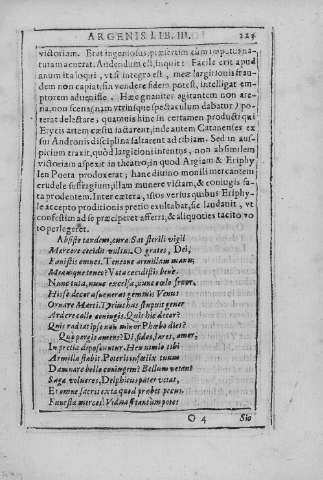 ARGENIS LIB. III.
victoriam. Erat ingeniosus, præsertim cum impur na-
tura macuerat. Audendum est, inquit: Facile erit apud
anum ita loqui, vt si integra est, meæ largitionis frau-
dem non capiat; sin vendere fidem potest, intelligat em-
ptorem aduenisse. Hæc gnauiter agitantem non are-
na, non scena (nam vtrinque spectaculum dabatur) po-
terat delectare; quamuis hinc in certamen producti qui
Erycis artem cæstu iactarent, inde autem Catanenses ex
sui Andronis disciplina saltarent ad tibiam. Sed in aus-
picium traxit, quòd largitioni intentus, non absimilem
victoriam aspexit in theatro, in quod Argiam & Eriphy
len Poeta produxerat; hanc diuino monili mercantem
crudele suffragium, illam munere victam, & coniugis fa-
ta prodentem. Inter cætera, istos versus quibus Eriphy-
le accepto proditionis pretio exultabat, sic laudauit, vt
confestim ad se præciperet afferri, & aliquoties tacito vo
to perlegeret.
Absiste tandem, cura. Sat sterili vigil
Mærore cecidit vultus. O grates, Dei,
Fauistis omnes. Teneone armillam manu;
Meamque teneo? Vota cecidistis bene.
Nunc tuta, nunc excelsa, cunc cælo fruor.
His se decor assueuerat gemmis Venus
Ornare Marti. Tyrius has stupuit gener
Ardere collo coniugis. Quis hic decor?
Quis radiat ipso non minor Phœbo dies?
Quò pergis amens? Di, fides, lares, amor,
In pretia disponuntur. Heu numio tibi
Armilla stabit. Poteris infœlix tuum
Damnare bello coniugem? Bellum vetant
Saga volucres, Delphicus pater vetat,
Et omne sacris exta quod probat pecus.
Funesta merces! Vidua si tantùm potes
O 4
Sic